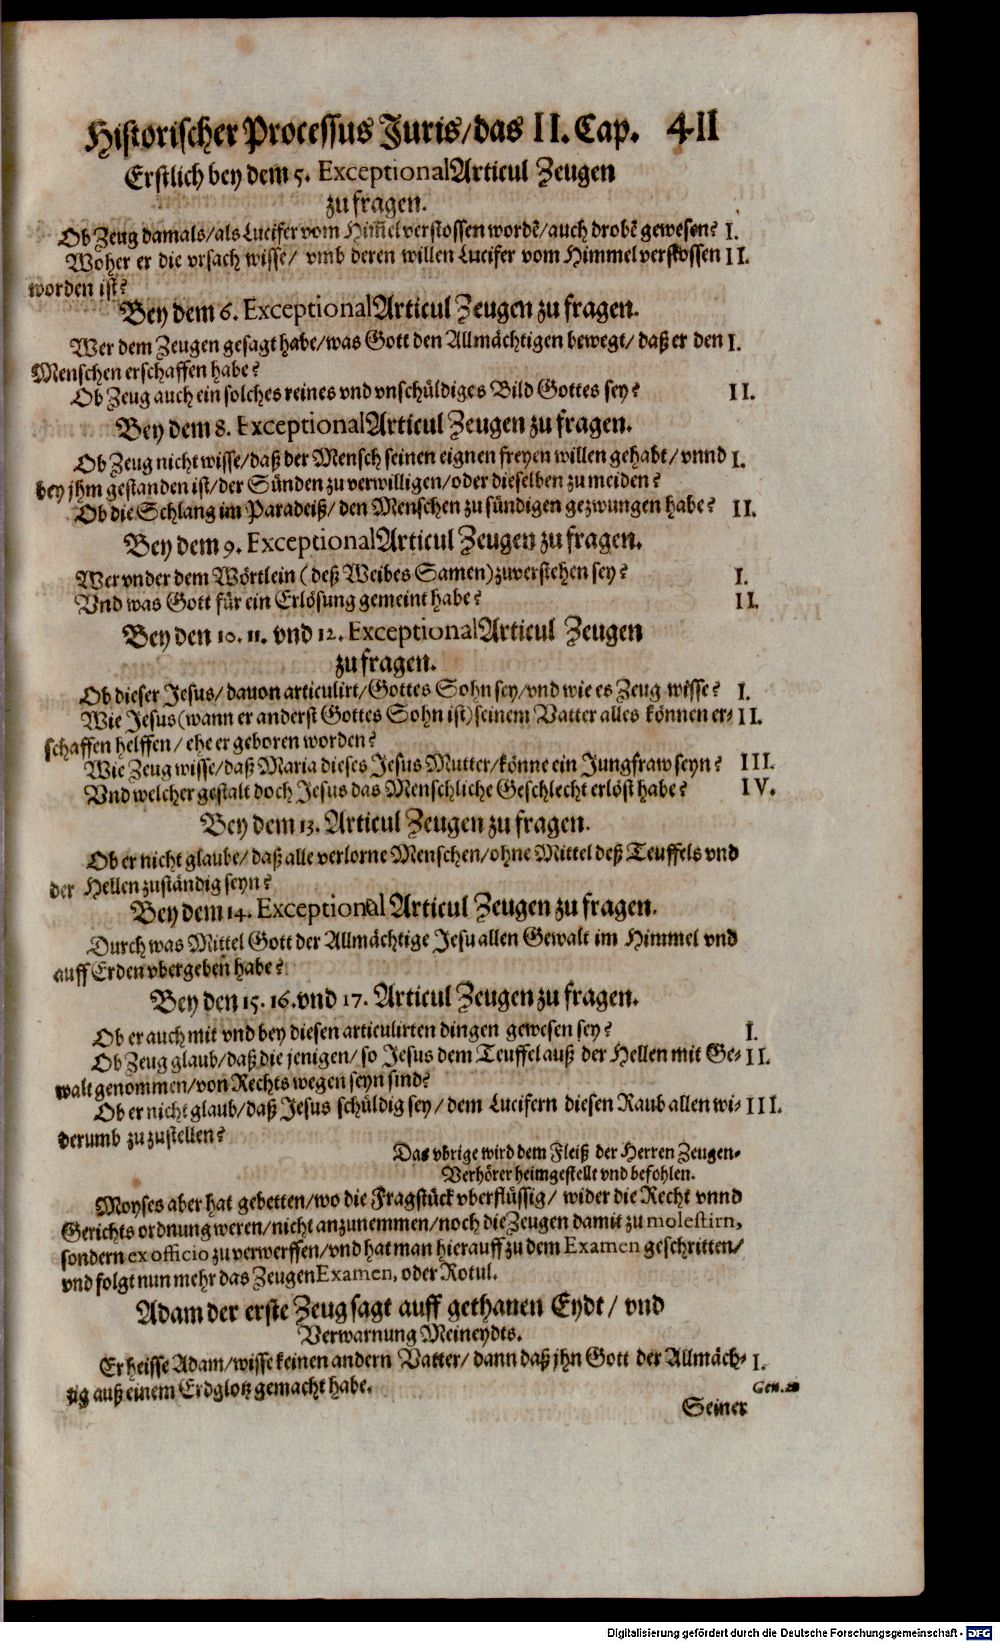 Historischer Processus Juris/das II. Cap. 411
Erstlich bey dem 5. Exceptional Articul Zeugen
zu fragen.
Ob Zeug damals/als Lucifer vom Him̃el verstossen wordẽ/auch drobẽ gewesen? I.
Woher er die vrsach wisse/ vmb deren willen Lucifer vom Himmel verstossen II.
worden ist?
Bey dem 6. Exceptional Articul Zeugen zu fragen.
Wer dem Zeugen gesagt habe/was Gott den Allmächtigen bewegt/ daß er den I.
Menschen erschaffen habe?
Ob Zeug auch ein solches reines vnd vnschüldiges Bild Gottes sey? II.
Bey dem 8. Exceptional Articul Zeugen zu fragen.
Ob Zeug nicht wisse/daß der Mensch seinen eignen freyen willen gehabt/ vnnd I.
bey jhm gestanden ist/der Sünden zu verwilligen/oder dieselben zu meiden?
Ob die Schlang im Paradeiß/ den Menschen zu sündigen gezwungen habe? II.
Bey dem 9. Exceptional Articul Zeugen zu fragen.
Wer vnder dem Wörtlein (deß Weibes Samen) zuverstehen sey? I.
Vnd was Gott für ein Erlösung gemeint habe? II.
Bey den 10. 11. vnd 12. Exceptional Articul Zeugen
zu fragen.
Ob dieser Jesus/ davon articulirt/Gottes Sohn sey/vnd wie es Zeug wisse? I.
Wie Jesus (wann er anderst Gottes Sohn ist) seinem Vatter alles können er- II.
schaffen helffen/ ehe er geboren worden?
Wie Zeug wisse/daß Maria dieses Jesus Mutter/könne ein Jungfraw seyn? III.
Vnd welcher gestalt doch Jesus das Menschliche Geschlecht erlöst habe? IV.
Bey dem 13. Articul Zeugen zu fragen.
Ob er nicht glaube/ daß alle verlorne Menschen/ohne Mittel deß Teuffels vnd
der Hellen zuständig seyn?
Bey dem 14. Exceptional Articul Zeugen zu fragen.
Durch was Mittel Gott der Allmächtige Jesu allen Gewalt im Himmel vnd
auff Erden vbergeben habe?
Bey den 15. 16. vnd 17. Articul Zeugen zu fragen.
Ob er auch mit vnd bey diesen articulirten dingen gewesen sey? I.
Ob Zeug glaub/daß die jenigen/ so Jesus dem Teuffel auß der Hellen mit Ge- II.
walt genommen/von Rechts wegen seyn sind?
Ob er nicht glaub/daß Jesus schüldig sey/ dem Lucifern diesen Raub allen wi- III.
derumb zu zustellen?
Das vbrige wird dem Fleiß der Herren Zeugen-
Verhörer heimgestellt vnd befohlen.
Moyses aber hat gebetten/wo die Fragstück vberflüssig/ wider die Recht vnnd
Gerichts ordnung weren/nicht anzunemmen/noch die Zeugen damit zu molestirn,
sondern ex officio zu verwerffen/vnd hat man hierauff zu dem Examen geschritten/
vnd folgt nun mehr das Zeugen Examen, oder Rotul.
Adam der erste Zeug sagt auff gethanen Eydt/ vnd
Verwarnung Meineydts.
Er heisse Adam/wisse keinen andern Vatter/ dann daß jhn Gott der Allmäch- I.
tig auß einem Erdglotz gemacht habe.
Gen.
Seiner
Digitalisierung gefördert durch die Deutsche Forschungsgemeinschaft - DFG